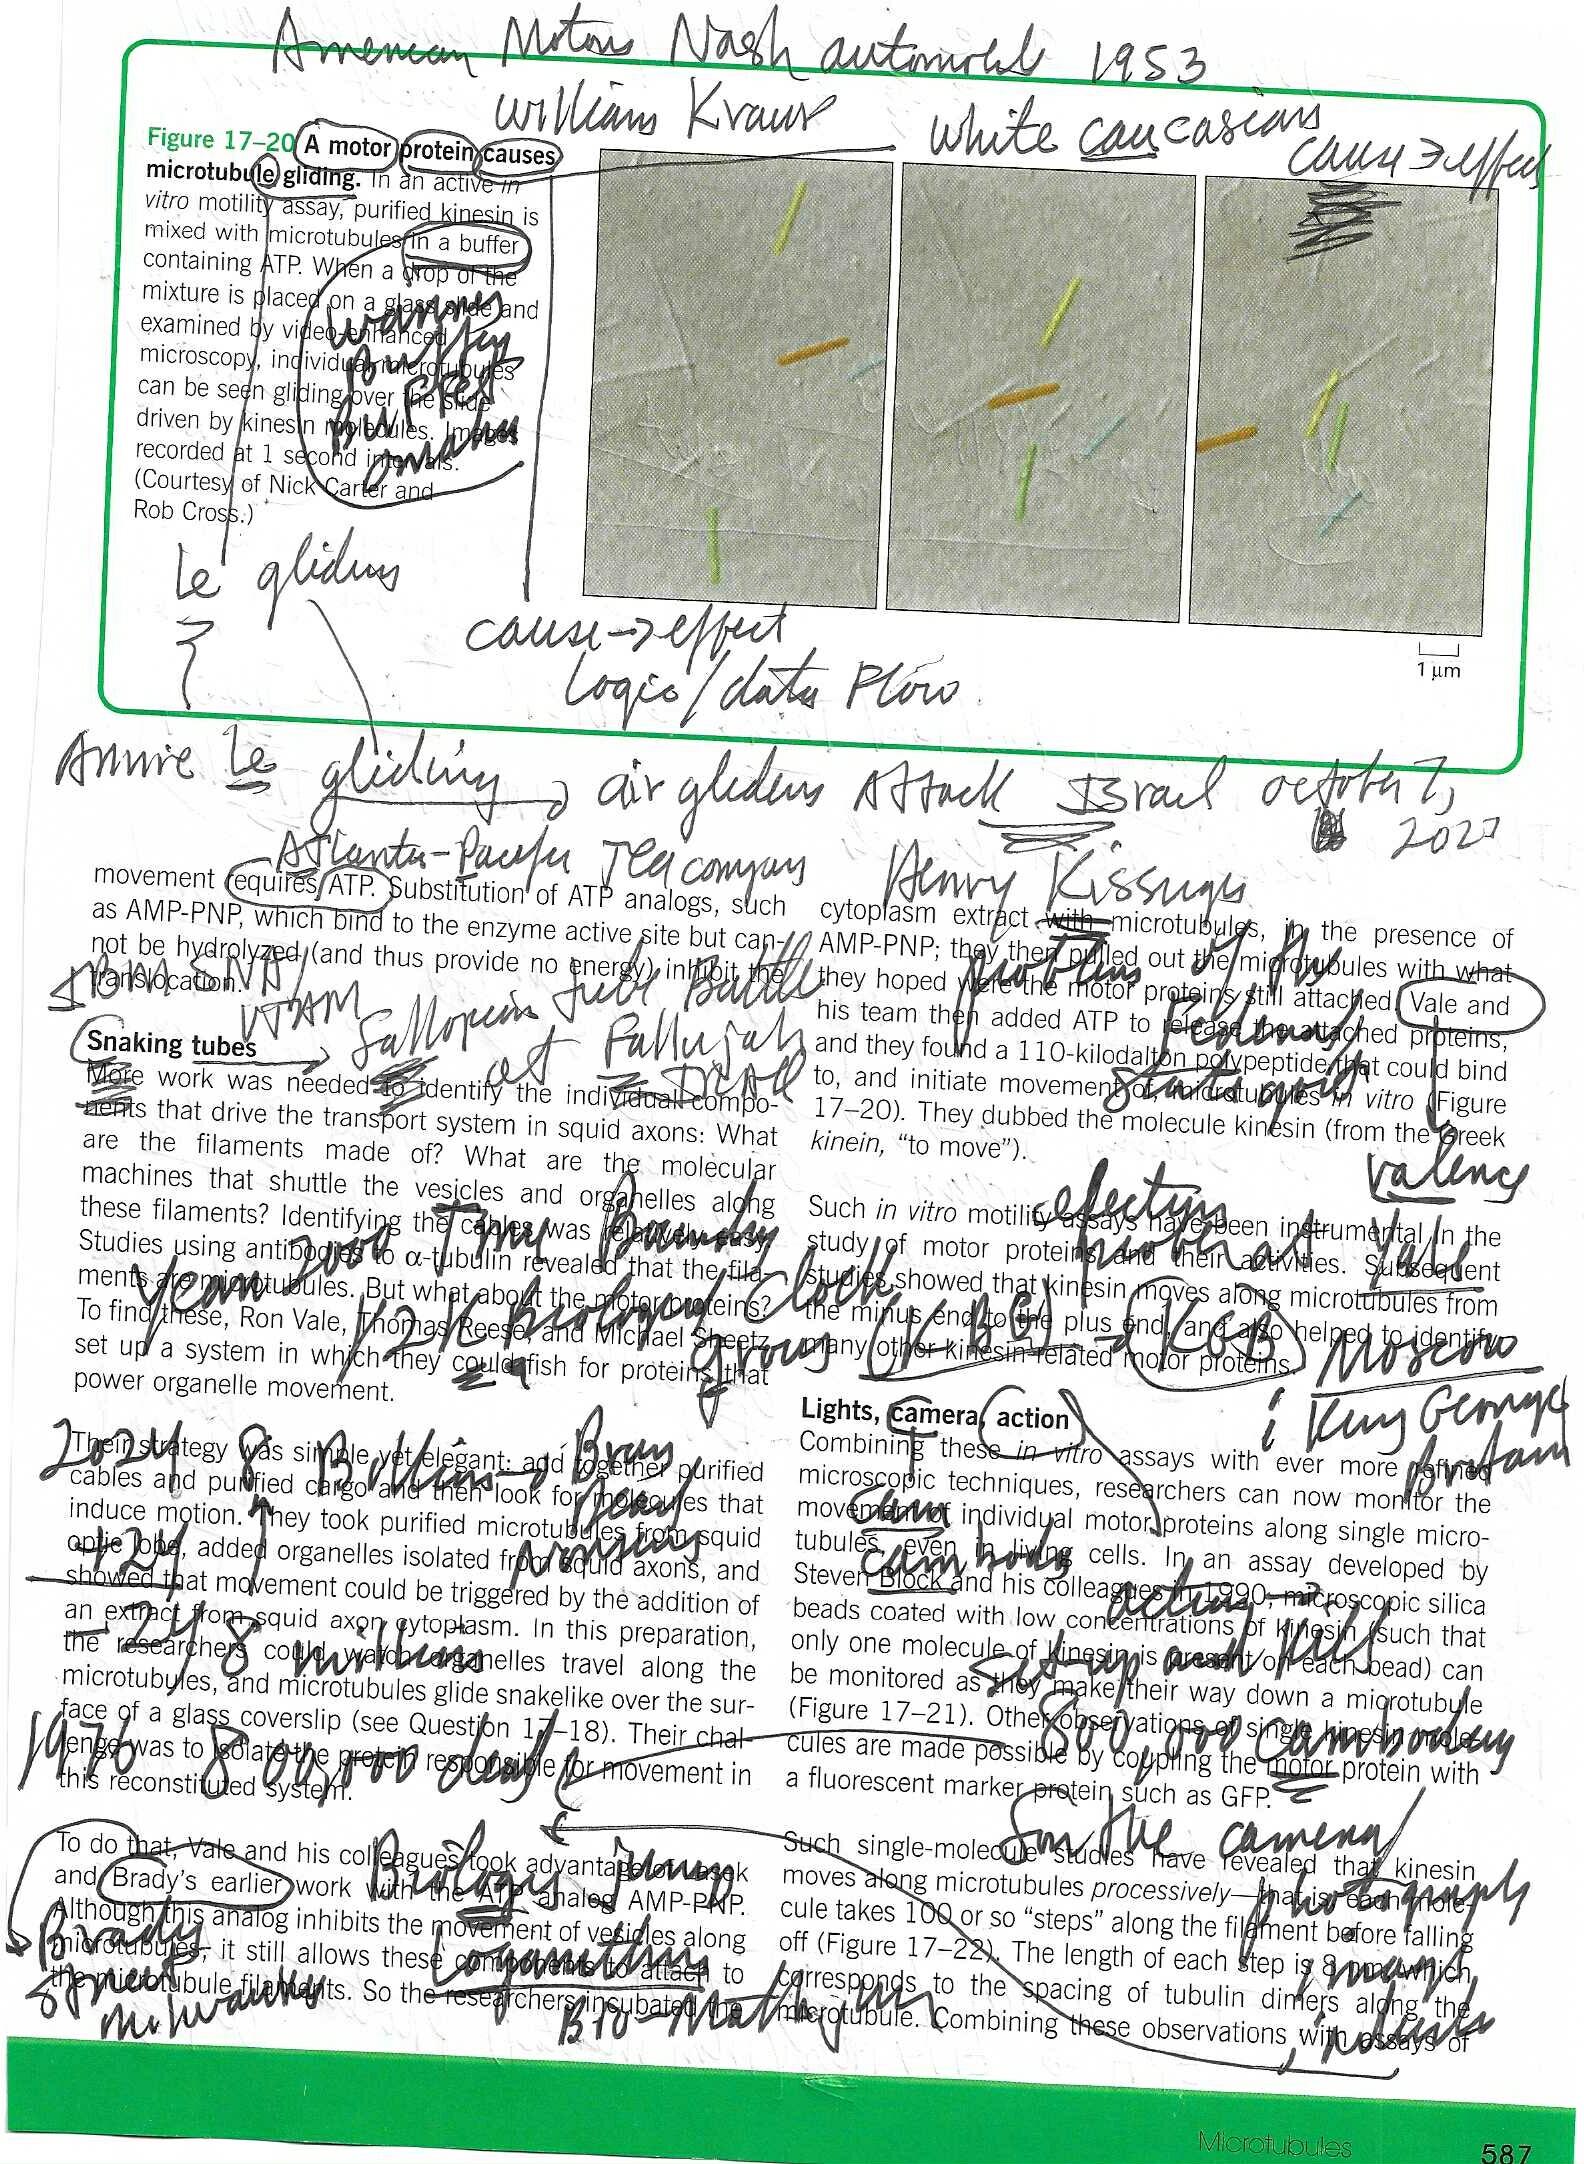 American Motors Nash automobile 1953
William Kraus
white caucasians
cause → effect
Figure 17–20 A motor protein causes
microtubule gliding. In an active in
vitro motility assay, purified kinesin is
mixed with microtubules in a buffer
containing ATP. When a drop of the
mixture is placed on a glass slide and
examined by video-enhanced
microscopy, individual microtubules
can be seen gliding over the slide
driven by kinesin molecules. Images
recorded at 1 second intervals.
(Courtesy of Nick Carter and
Rob Cross.)
Buffet
omaha
Le gliders
cause → effect
Logic/data Flow
1 μm
Annie Le gliding → air gliders Attack Israel october 7,
Atlantic-Pacific Tea company
movement requires ATP. Substitution of ATP analogs, such
as AMP-PNP, which bind to the enzyme active site but can-
not be hydrolyzed (and thus provide no energy) inhibit the
translocation.
IBM SNA/
VTAM
Fallopian Tube Battle
at Fallujah
Snaking tubes
More work was needed to identify the individual compo-
nents that drive the transport system in squid axons: What
are the filaments made of? What are the molecular
machines that shuttle the vesicles and organelles along
these filaments? Identifying the cables was relatively easy.
Studies using antibodies to α-tubulin revealed that the fila-
ments are microtubules. But what about the motor proteins?
To find these, Ron Vale, Thomas Reese, and Michael Sheetz
set up a system in which they could fish for proteins that
power organelle movement.
year 2000
Y2K Biology Clock
group (KBG) → KGB Moscow
2024 8 Billion → Bray
Their strategy was simple yet elegant: add together purified
cables and purified cargo and then look for molecules that
induce motion. They took purified microtubules from squid
optic lobe, added organelles isolated from squid axons, and
showed that movement could be triggered by the addition of
an extract from squid axon cytoplasm. In this preparation,
the researchers could watch organelles travel along the
microtubules, and microtubules glide snakelike over the sur-
face of a glass coverslip (see Question 17–18). Their chal-
lenge was to isolate the protein responsible for movement in
this reconstituted system.
-24
-24 8 millions
1976 800,000 dead
To do that, Vale and his colleagues took advantage of Lasek
and Brady's earlier work with the ATP analog AMP-PNP.
Although this analog inhibits the movement of vesicles along
microtubules, it still allows these components to attach to
the microtubule filaments. So the researchers incubated the
Brady
Street
Milwaukee
Biologist jump
Logarithm
Henry Kissinger
problems of the
cytoplasm extract with microtubules, in the presence of
AMP-PNP; they then pulled out the microtubules with what
they hoped were the motor proteins still attached. Vale and
his team then added ATP to release the attached proteins,
and they found a 110-kilodalton polypeptide that could bind
to, and initiate movement of, microtubules in vitro (Figure
17–20). They dubbed the molecule kinesin (from the Greek
kinein, “to move”).
valence
Such in vitro motility assays have been instrumental in the
study of motor proteins and their activities. Subsequent
studies showed that kinesin moves along microtubules from
the minus end to the plus end, and also helped to identify
many other kinesin-related motor proteins.
King George
Britain
Lights, camera, action
Combining these in vitro assays with ever more refined
microscopic techniques, researchers can now monitor the
movement of individual motor proteins along single micro-
tubules, even in living cells. In an assay developed by
Steven Block and his colleagues in 1990, microscopic silica
beads coated with low concentrations of kinesin (such that
only one molecule of kinesin is present on each bead) can
be monitored as they make their way down a microtubule
(Figure 17–21). Other observations of single kinesin mole-
cules are made possible by coupling the motor protein with
a fluorescent marker protein such as GFP.
cam
cambody
action
set-up and kill
800,000 cambodian
for the camera/
photograph
image
industry
Such single-molecule studies have revealed that kinesin
moves along microtubules processively—that is, each mole-
cule takes 100 or so “steps” along the filament before falling
off (Figure 17–22). The length of each step is 8 nm, which
corresponds to the spacing of tubulin dimers along the
microtubule. Combining these observations with assays of
Microtubules
587